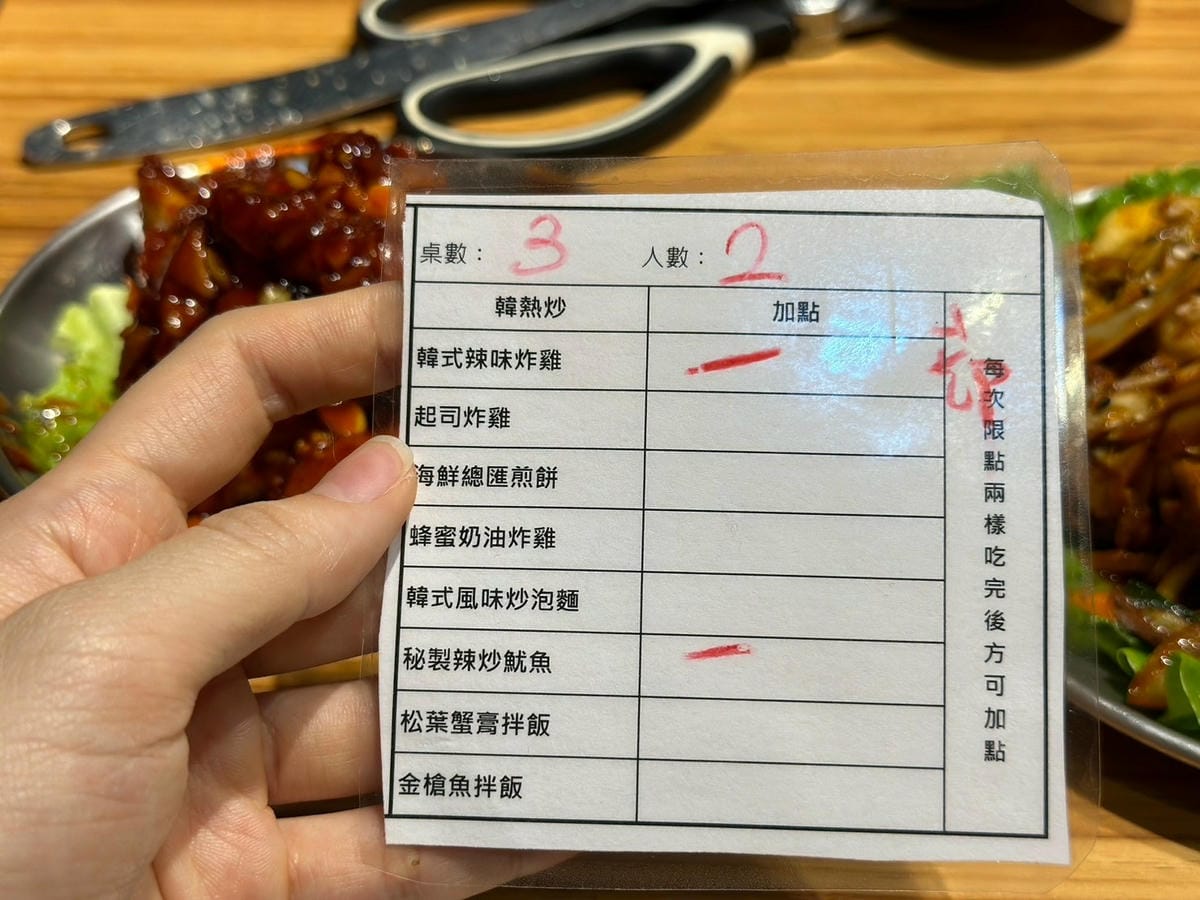 桌數： 3 人數： 2
韓熱炒 加點
韓式辣味炸雞 一
起司炸雞
海鮮總匯煎餅
蜂蜜奶油炸雞
韓式風味炒泡麵
秘製辣炒魷魚 一
松葉蟹膏拌飯
金槍魚拌飯
每次限點兩樣吃完後方可加點